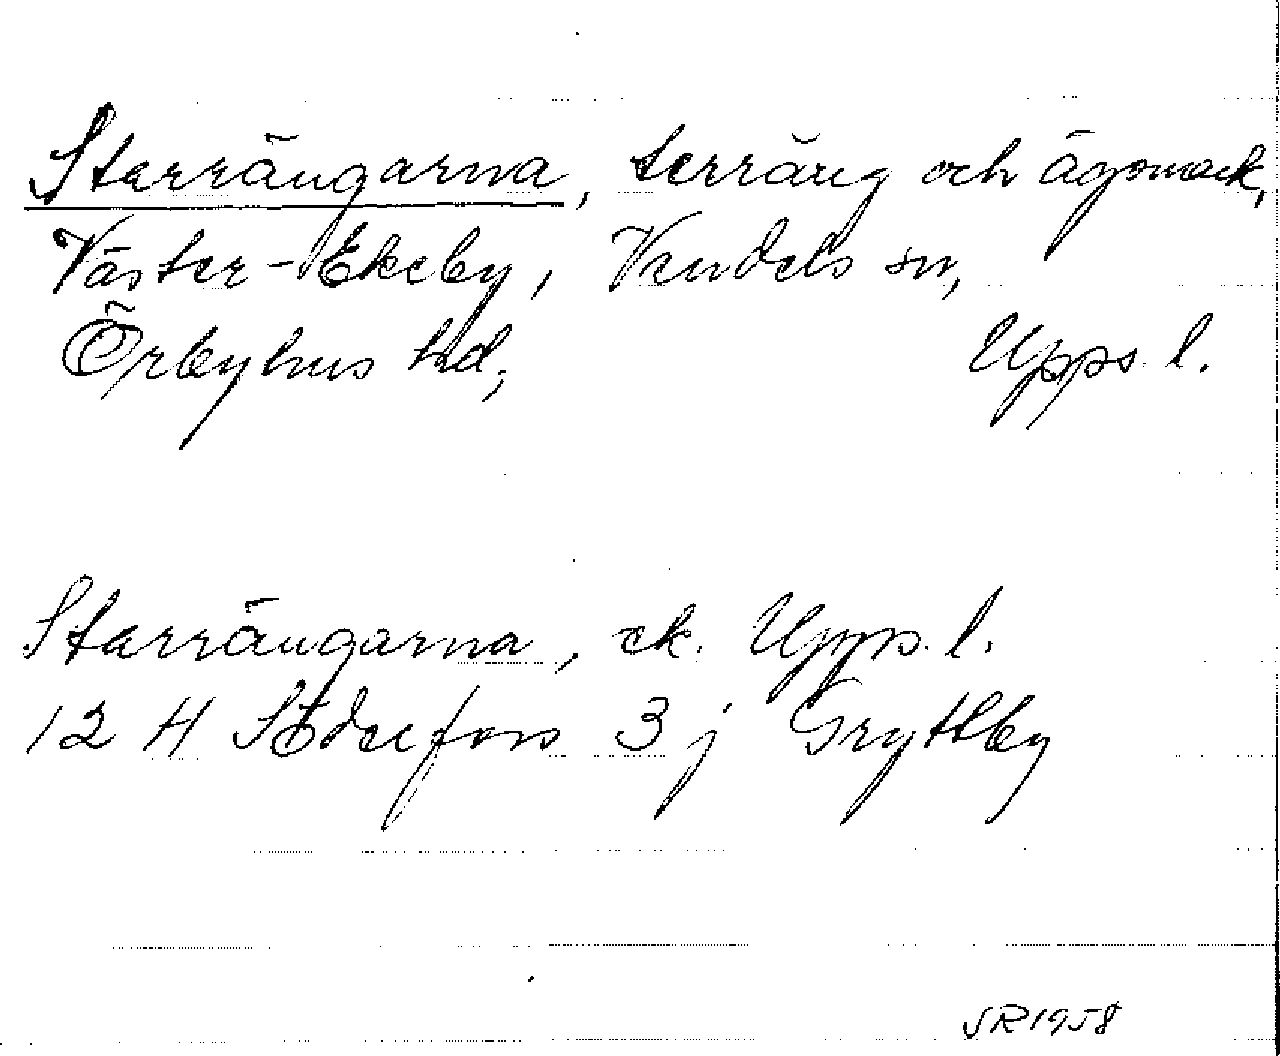 Starrängarna, terräng och ägomark,
Väster-Ekeby, Vendels sn,
Örbyhus hd, Upps. l.
Starrängarna, ek. Upps. l.
12 H Söderfors 3 j Gryttby
SR 1958